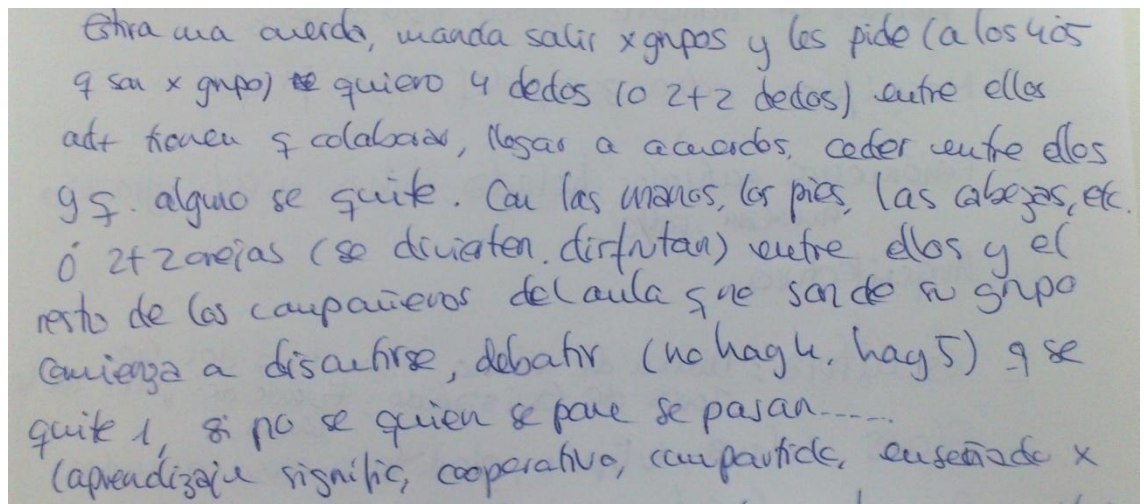 Estira una cuerda, manda salir x grupos y les pide (a los 4 ó 5
q son x grupo) quiero 4 dedos (o 2+2 dedos) entre ellos
tienen q colaborar, llegar a acuerdos, ceder entre ellos
y q. alguno se quite. Con las manos, los pies, las cabezas, etc.
ó 2+2 orejas (se divierten, disfrutan) entre ellos y el
resto de los compañeros del aula que son de su grupo
comienza a discutirse, debatir (no hay 4, hay 5) q se
quite 1, si no se quien se pone se pasan.....
(aprendizaje signific, cooperativo, compartido, enseñado x